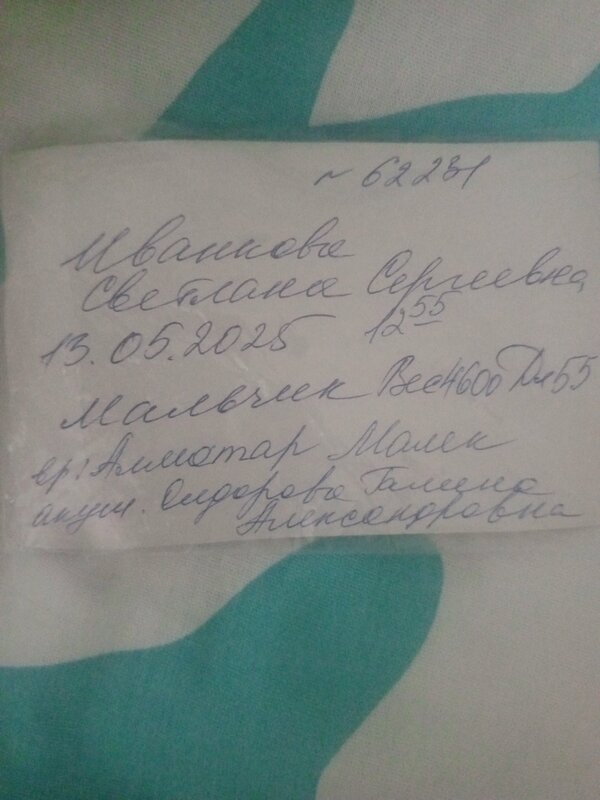 ~ 62231
Иванкова
Светлана Сергеевна
13.05.2025 12 55
Мальчик Вес 4600 Дл 55
вр: Алматар Малек
акуш. Сидорова Галина
Александровна